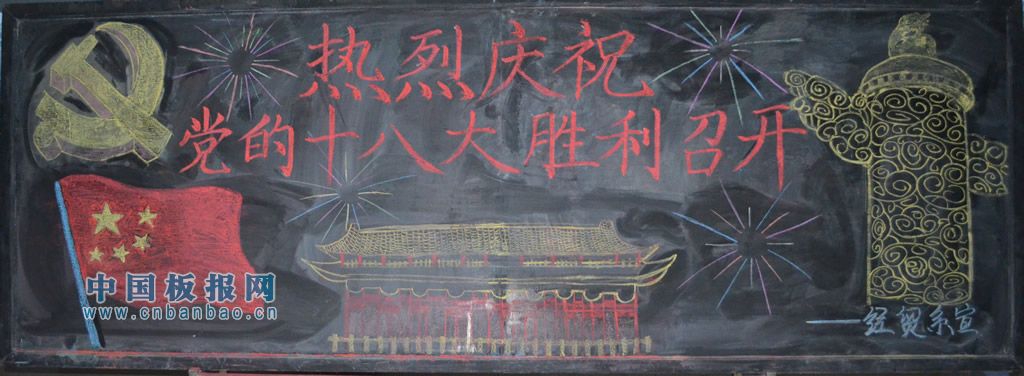 热烈庆祝
党的十八大胜利召开
中国板报网
www.cnbanbao.cn
——经贸系宣